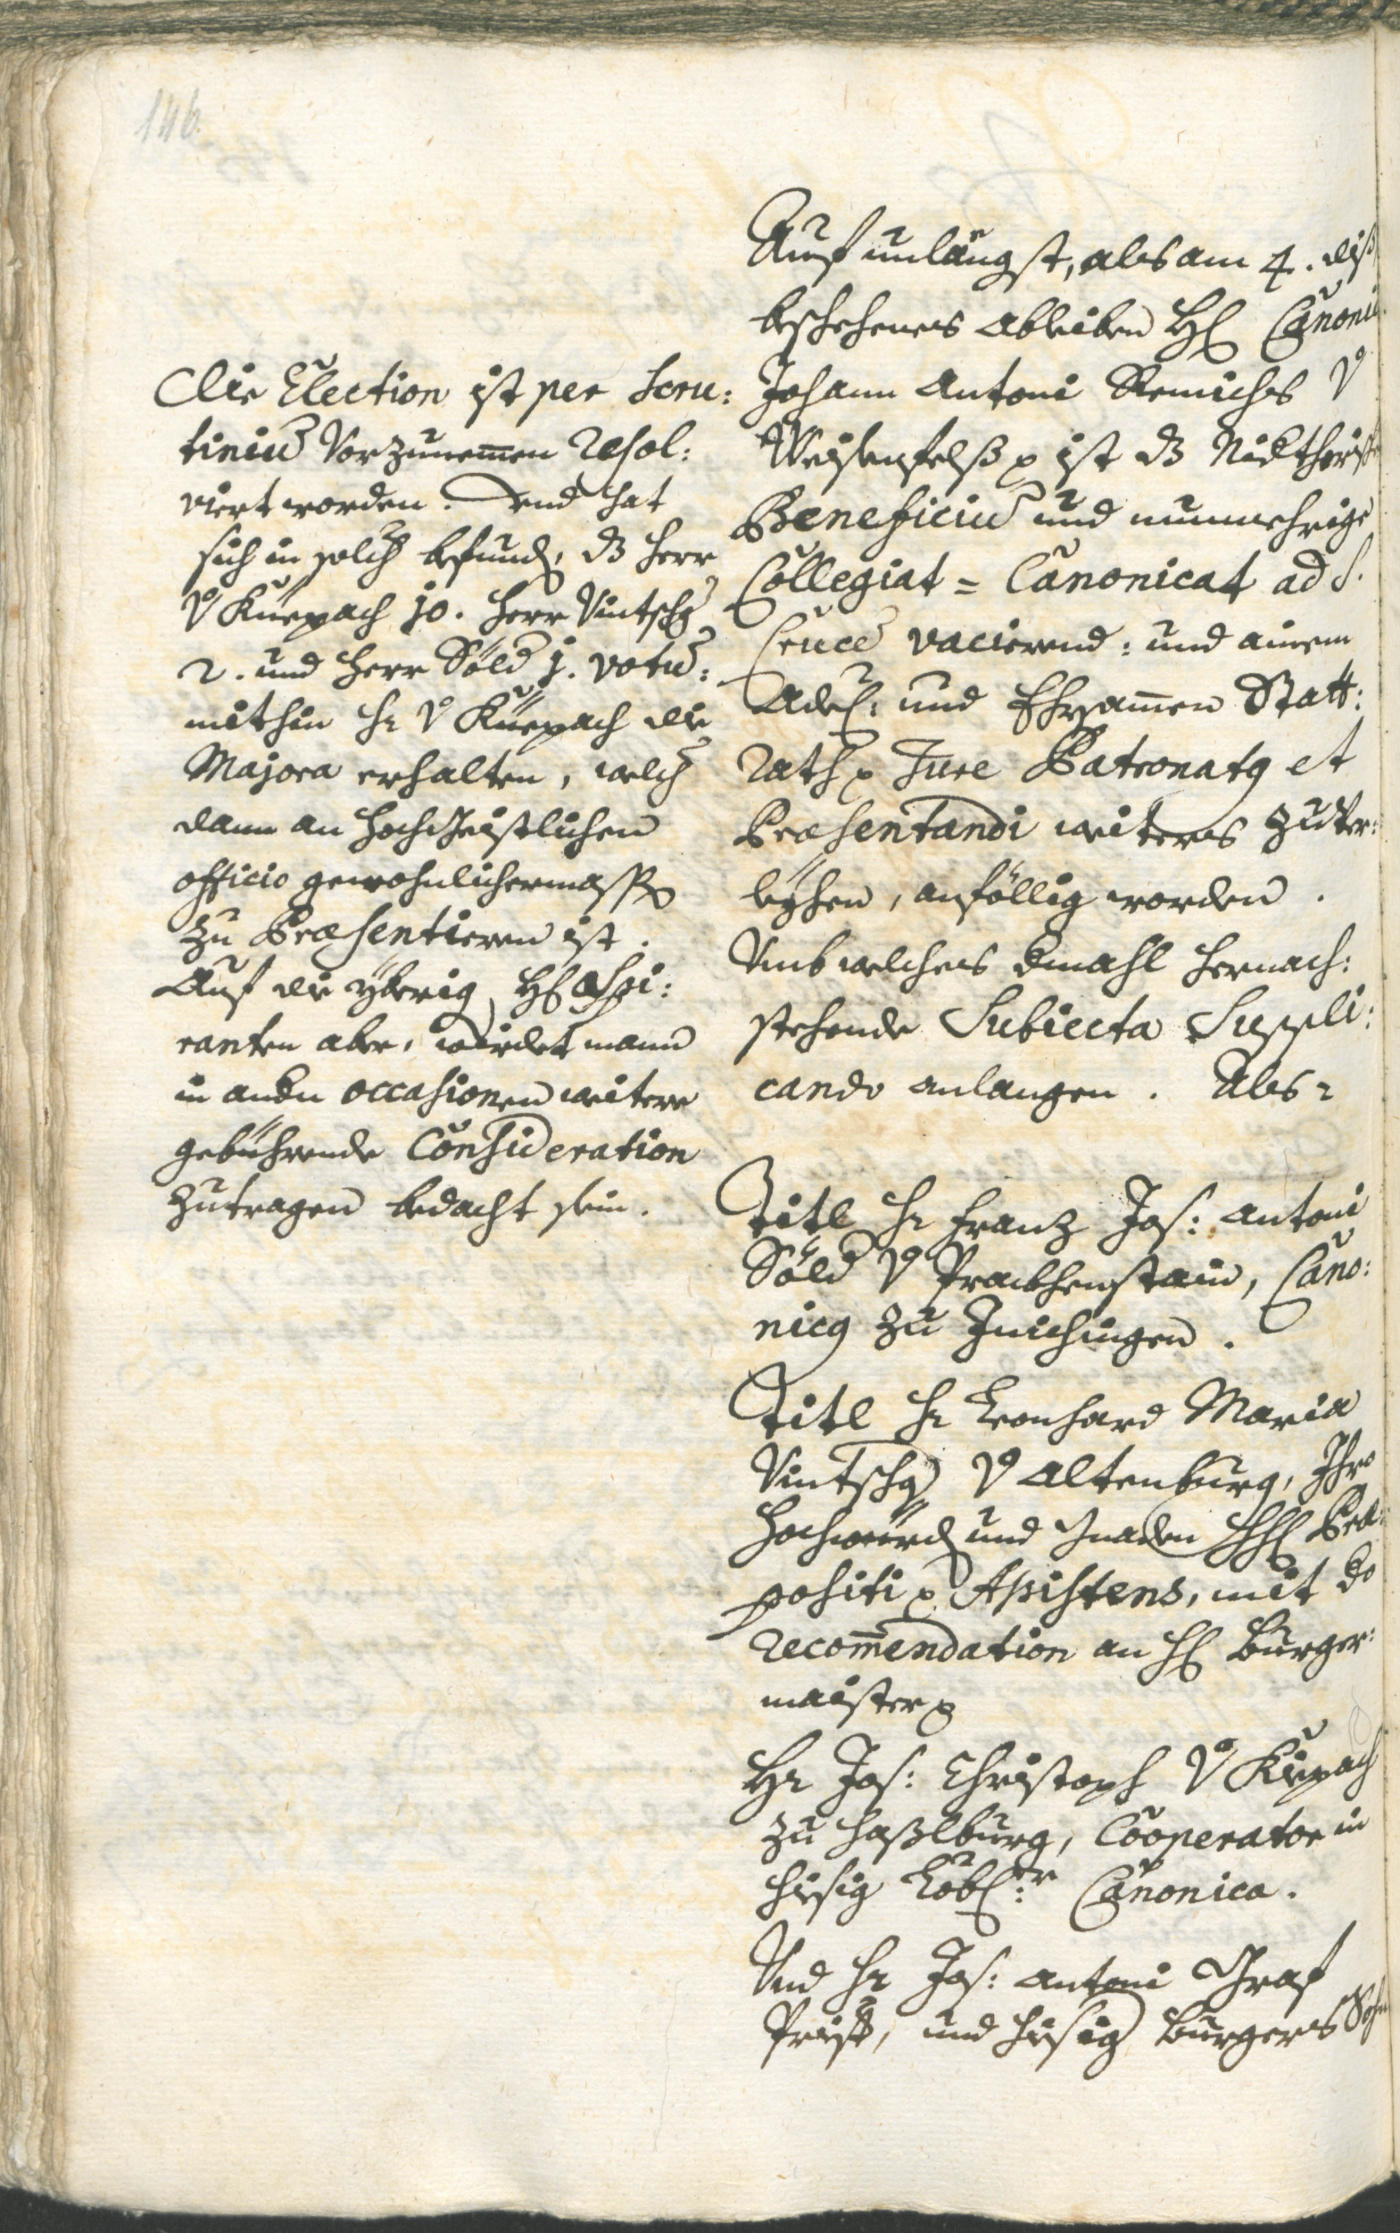 146.
Die Election ist per Scru:
tiniu̅ Vorzunem̅en Resol:
viert worden. Vnd hat
sich in solch befund, dz Herr
V Küepach 10. Herr Vintschg
2. und Herr Söld 1. votu̅:
mithin Hr V Küepach die
Majora erhalten, welch
dann an Hochgeistlichen
officio gewohnlichermassen
zu Præsentieren ist.
Auf die yberig H. Aspi:
ranten aber, würdet mann
in andn occasionen weitere
gebührende Consideration
zutragen bedacht sein.
Auf unlängst, als am 4. diß
beschehenes ableiben H. Canonici
Johann Antoni Remiches V
Weisenfelß p ist dz
Beneficiu̅ und nunmehrige
Collegiat= Canonicat ad S.
Cruce̅ vacierend: und ainem
Adel: und Ehrsam̅en Statt:
Rath p Jure Patronatq et
Præsentandi weiters zuver:
leyhen, anföllig worden.
Vmb welches dmahl hernach:
stehende Subiecta Suppli:
cando anlangen. Als:
Titl Hr Franz Jos: Antoni
Söld V Prackhenstain, Cano:
nicq zu Inichingen.
Titl Hr Leonhard Maria
Vintschg V Altenburg, Ihro
Hochwürd und Gnaden H. Præ:
positi p Assistens, mit do
recom̅endation an H. Burger:
maister p
Hr Jos: Christoph V Küepach
zu Haßlburg, Cooperator in
hiesig Löbl:r Canonica.
Vnd Hr Jos: Antoni Graf
Priest, und hiesig Burgers Sohn